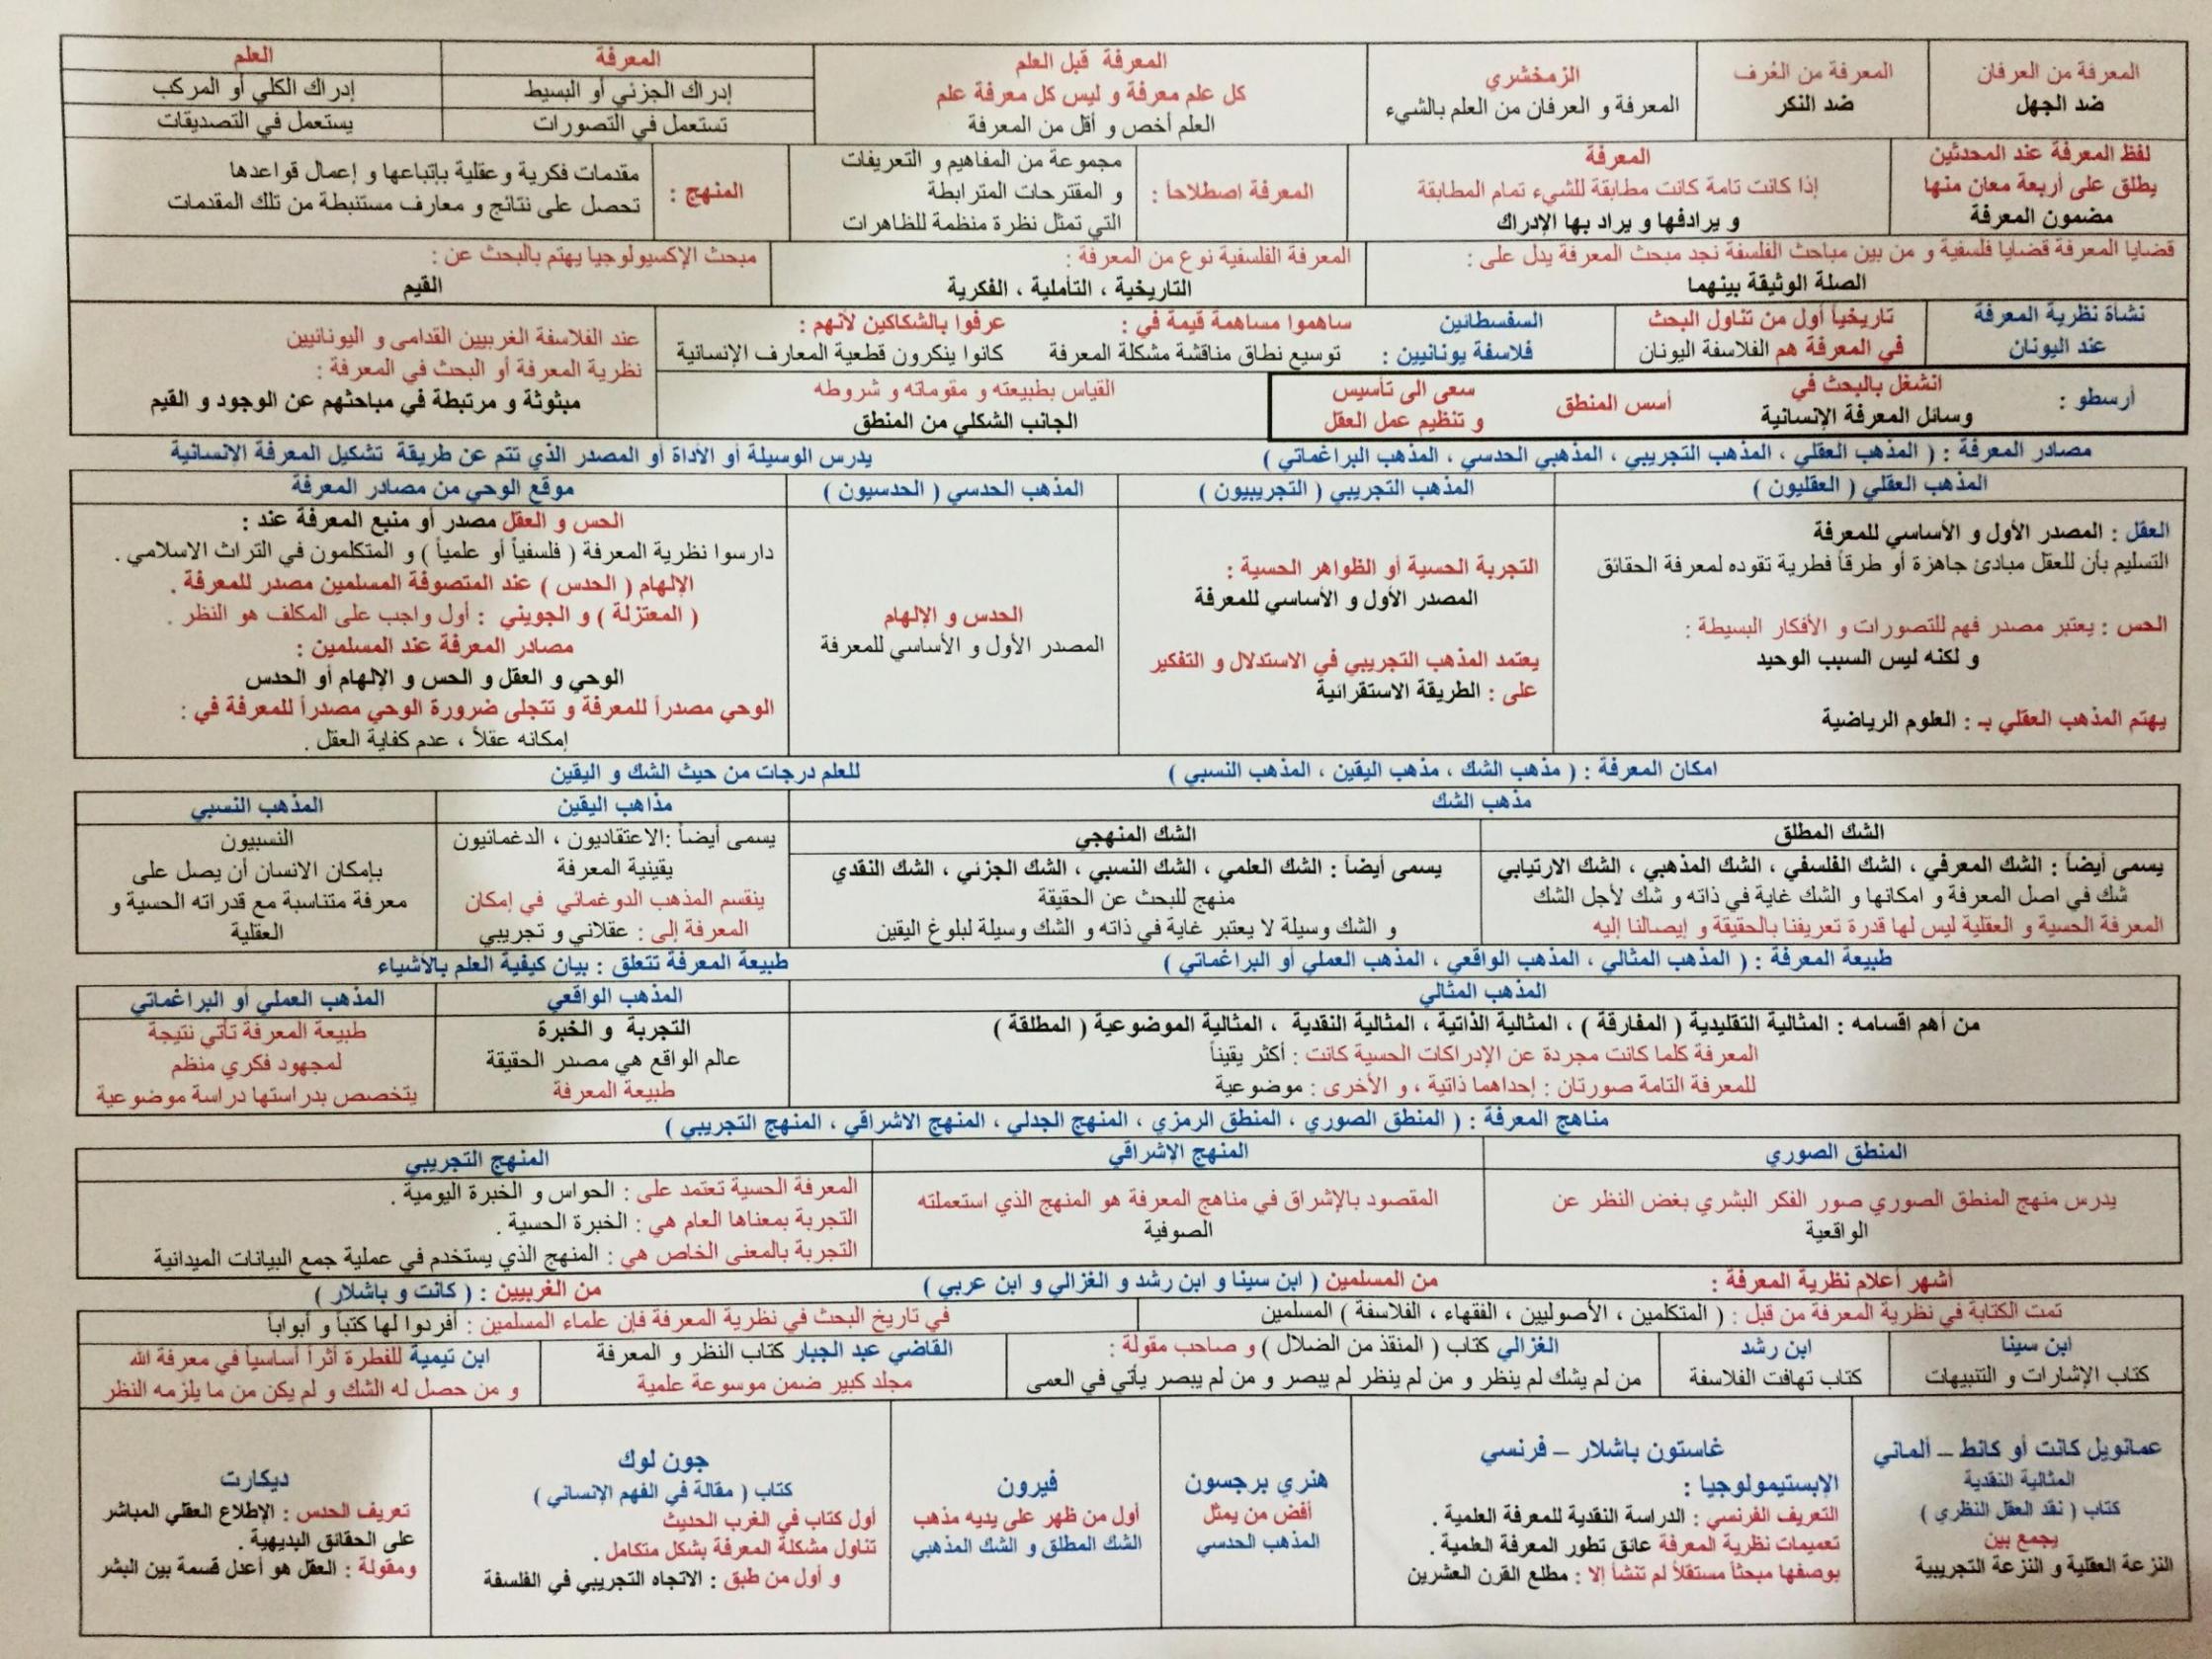 المعرفة من العرفان
ضد الجهل
المعرفة من العُرف
ضد النكر
الزمخشري
المعرفة و العرفان من العلم بالشيء
المعرفة قبل العلم
كل علم معرفة و ليس كل معرفة علم
العلم أخص و أقل من المعرفة
المعرفة
إدراك الجزئي أو البسيط
تستعمل في التصورات
العلم
إدراك الكلي أو المركب
يستعمل في التصديقات
لفظ المعرفة عند المحدثين
يطلق على أربعة معان منها
مضمون المعرفة
المعرفة
إذا كانت تامة كانت مطابقة للشيء تمام المطابقة
و يرادفها و يراد بها الإدراك
المعرفة اصطلاحاً :
مجموعة من المفاهيم و التعريفات
و المقترحات المترابطة
التي تمثل نظرة منظمة للظاهرات
المنهج :
مقدمات فكرية وعقلية بإتباعها و إعمال قواعدها
تحصل على نتائج و معارف مستنبطة من تلك المقدمات
قضايا المعرفة قضايا فلسفية و من بين مباحث الفلسفة نجد مبحث المعرفة يدل على :
الصلة الوثيقة بينهما
المعرفة الفلسفية نوع من المعرفة :
التاريخية ، التأملية ، الفكرية
مبحث الإكسيولوجيا يهتم بالبحث عن :
القيم
نشأة نظرية المعرفة
عند اليونان
تاريخياً أول من تناول البحث
في المعرفة هم الفلاسفة اليونان
السفسطانين ساهموا مساهمة قيمة في : عرفوا بالشكاكين لأنهم :
فلاسفة يونانيين : توسيع نطاق مناقشة مشكلة المعرفة كانوا ينكرون قطعية المعارف الإنسانية
عند الفلاسفة الغربيين القدامى و اليونانيين
نظرية المعرفة أو البحث في المعرفة :
مبثوثة و مرتبطة في مباحثهم عن الوجود و القيم
أرسطو :
انشغل بالبحث في
وسائل المعرفة الإنسانية
أسس المنطق
سعى الى تأسيس
و تنظيم عمل العقل
القياس بطبيعته و مقوماته و شروطه
الجانب الشكلي من المنطق
مصادر المعرفة : ( المذهب العقلي ، المذهب التجريبي ، المذهبي الحدسي ، المذهب البراغماتي ) يدرس الوسيلة أو الأداة أو المصدر الذي تتم عن طريقة تشكيل المعرفة الانسانية
المذهب العقلي ( العقليون )
العقل : المصدر الأول و الأساسي للمعرفة
التسليم بأن للعقل مبادئ جاهزة أو طرقاً فطرية تقوده لمعرفة الحقائق
الحس : يعتبر مصدر فهم للتصورات و الأفكار البسيطة :
و لكنه ليس السبب الوحيد
يهتم المذهب العقلي بـ : العلوم الرياضية
المذهب التجريبي ( التجريبيون )
التجربة الحسية أو الظواهر الحسية :
المصدر الأول و الأساسي للمعرفة
يعتمد المذهب التجريبي في الاستدلال و التفكير
على : الطريقة الاستقرائية
المذهب الحدسي ( الحدسيون )
الحدس و الإلهام
المصدر الأول و الأساسي للمعرفة
موقع الوحي من مصادر المعرفة
الحس و العقل مصدر أو منبع المعرفة عند :
دارسوا نظرية المعرفة ( فلسفياً أو علمياً ) و المتكلمون في التراث الاسلامي .
الإلهام ( الحدس ) عند المتصوفة المسلمين مصدر للمعرفة .
( المعتزلة ) و الجويني : أول واجب على المكلف هو النظر .
مصادر المعرفة عند المسلمين :
الوحي و العقل و الحس و الإلهام أو الحدس
الوحي مصدراً للمعرفة و تتجلى ضرورة الوحي مصدراً للمعرفة في :
إمكانه عقلاً ، عدم كفاية العقل .
امكان المعرفة : ( مذهب الشك ، مذهب اليقين ، المذهب النسبي ) للعلم درجات من حيث الشك و اليقين
مذهب الشك
الشك المطلق
يسمى أيضاً : الشك المعرفي ، الشك الفلسفي ، الشك المذهبي ، الشك الارتيابي
شك في اصل المعرفة و امكانها و الشك غاية في ذاته و شك لأجل الشك
المعرفة الحسية و العقلية ليس لها قدرة تعريفنا بالحقيقة و إيصالنا إليه
الشك المنهجي
يسمى أيضاً : الشك العلمي ، الشك النسبي ، الشك الجزئي ، الشك النقدي
منهج للبحث عن الحقيقة
و الشك وسيلة لا يعتبر غاية في ذاته و الشك وسيلة لبلوغ اليقين
مذاهب اليقين
يسمى أيضاً :الاعتقاديون ، الدغمائيون
يقينية المعرفة
ينقسم المذهب الدوغمائي في إمكان
المعرفة إلى : عقلاني و تجريبي
المذهب النسبي
النسبيون
بإمكان الانسان أن يصل على
معرفة متناسبة مع قدراته الحسية و
العقلية
طبيعة المعرفة : ( المذهب المثالي ، المذهب الواقعي ، المذهب العملي أو البراغماتي ) طبيعة المعرفة تتعلق : بيان كيفية العلم بالأشياء
المذهب المثالي
من أهم اقسامه : المثالية التقليدية ( المفارقة ) ، المثالية الذاتية ، المثالية النقدية ، المثالية الموضوعية ( المطلقة )
المعرفة كلما كانت مجردة عن الإدراكات الحسية كانت : أكثر يقيناً
للمعرفة التامة صورتان : إحداهما ذاتية ، و الأخرى : موضوعية
المذهب الواقعي
التجربة و الخبرة
عالم الواقع هي مصدر الحقيقة
طبيعة المعرفة
المذهب العملي أو البراغماتي
طبيعة المعرفة تأتي نتيجة
لمجهود فكري منظم
يتخصص بدراستها دراسة موضوعية
مناهج المعرفة : ( المنطق الصوري ، المنطق الرمزي ، المنهج الجدلي ، المنهج الاشراقي ، المنهج التجريبي )
المنطق الصوري
يدرس منهج المنطق الصوري صور الفكر البشري بغض النظر عن
الواقعية
المنهج الإشراقي
المقصود بالإشراق في مناهج المعرفة هو المنهج الذي استعملته
الصوفية
المنهج التجريبي
المعرفة الحسية تعتمد على : الحواس و الخبرة اليومية .
التجربة بمعناها العام هي : الخبرة الحسية .
التجربة بالمعنى الخاص هي : المنهج الذي يستخدم في عملية جمع البيانات الميدانية
أشهر أعلام نظرية المعرفة : من المسلمين ( ابن سينا و ابن رشد و الغزالي و ابن عربي ) من الغربيين : ( كانت و باشلار )
تمت الكتابة في نظرية المعرفة من قبل : ( المتكلمين ، الأصوليين ، الفقهاء ، الفلاسفة ) المسلمين
في تاريخ البحث في نظرية المعرفة فإن علماء المسلمين : أفردوا لها كتباً و أبواباً
ابن سينا
كتاب الإشارات و التنبيهات
ابن رشد
كتاب تهافت الفلاسفة
الغزالي كتاب ( المنقذ من الضلال ) و صاحب مقولة :
من لم يشك لم ينظر و من لم ينظر لم يبصر و من لم يبصر يأتي في العمى
القاضي عبد الجبار كتاب النظر و المعرفة
مجلد كبير ضمن موسوعة علمية
ابن تيمية للفطرة أثراً أساسياً في معرفة الله
و من حصل له الشك و لم يكن من ما يلزمه النظر
عمانويل كانت أو كانط – ألماني
المثالية النقدية
كتاب ( نقد العقل النظري )
يجمع بين
النزعة العقلية و النزعة التجريبية
غاستون باشلار – فرنسي
الإبستيمولوجيا :
التعريف الفرنسي : الدراسة النقدية للمعرفة العلمية .
تعميمات نظرية المعرفة عائق تطور المعرفة العلمية .
بوصفها مبحثاً مستقلاً لم تنشأ إلا : مطلع القرن العشرين
هنري برجسون
أفض من يمثل
المذهب الحدسي
فيرون
أول من ظهر على يديه مذهب
الشك المطلق و الشك المذهبي
جون لوك
كتاب ( مقالة في الفهم الإنساني )
أول كتاب في الغرب الحديث
تناول مشكلة المعرفة بشكل متكامل .
و أول من طبق : الاتجاه التجريبي في الفلسفة
ديكارت
تعريف الحدس : الإطلاع العقلي المباشر
على الحقائق البديهية .
ومقولة : العقل هو أعدل قسمة بين البشر